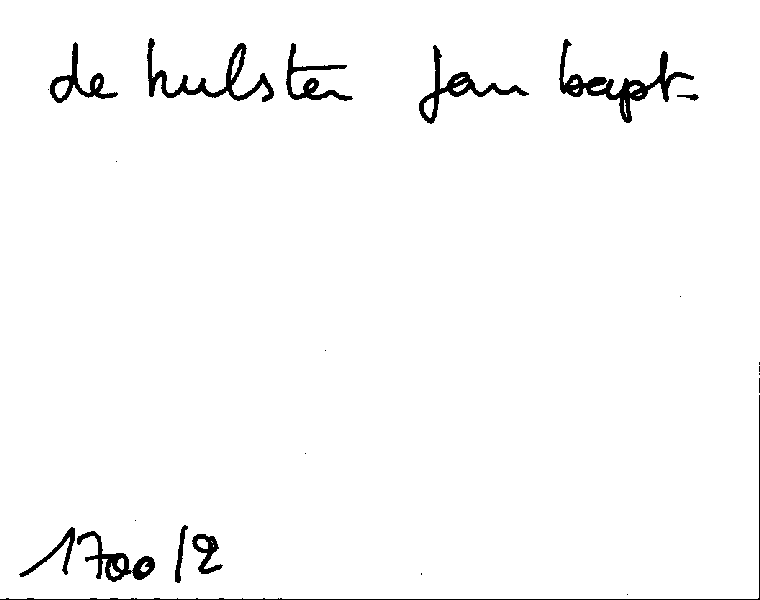 de hulster jan bapt.
1700/2